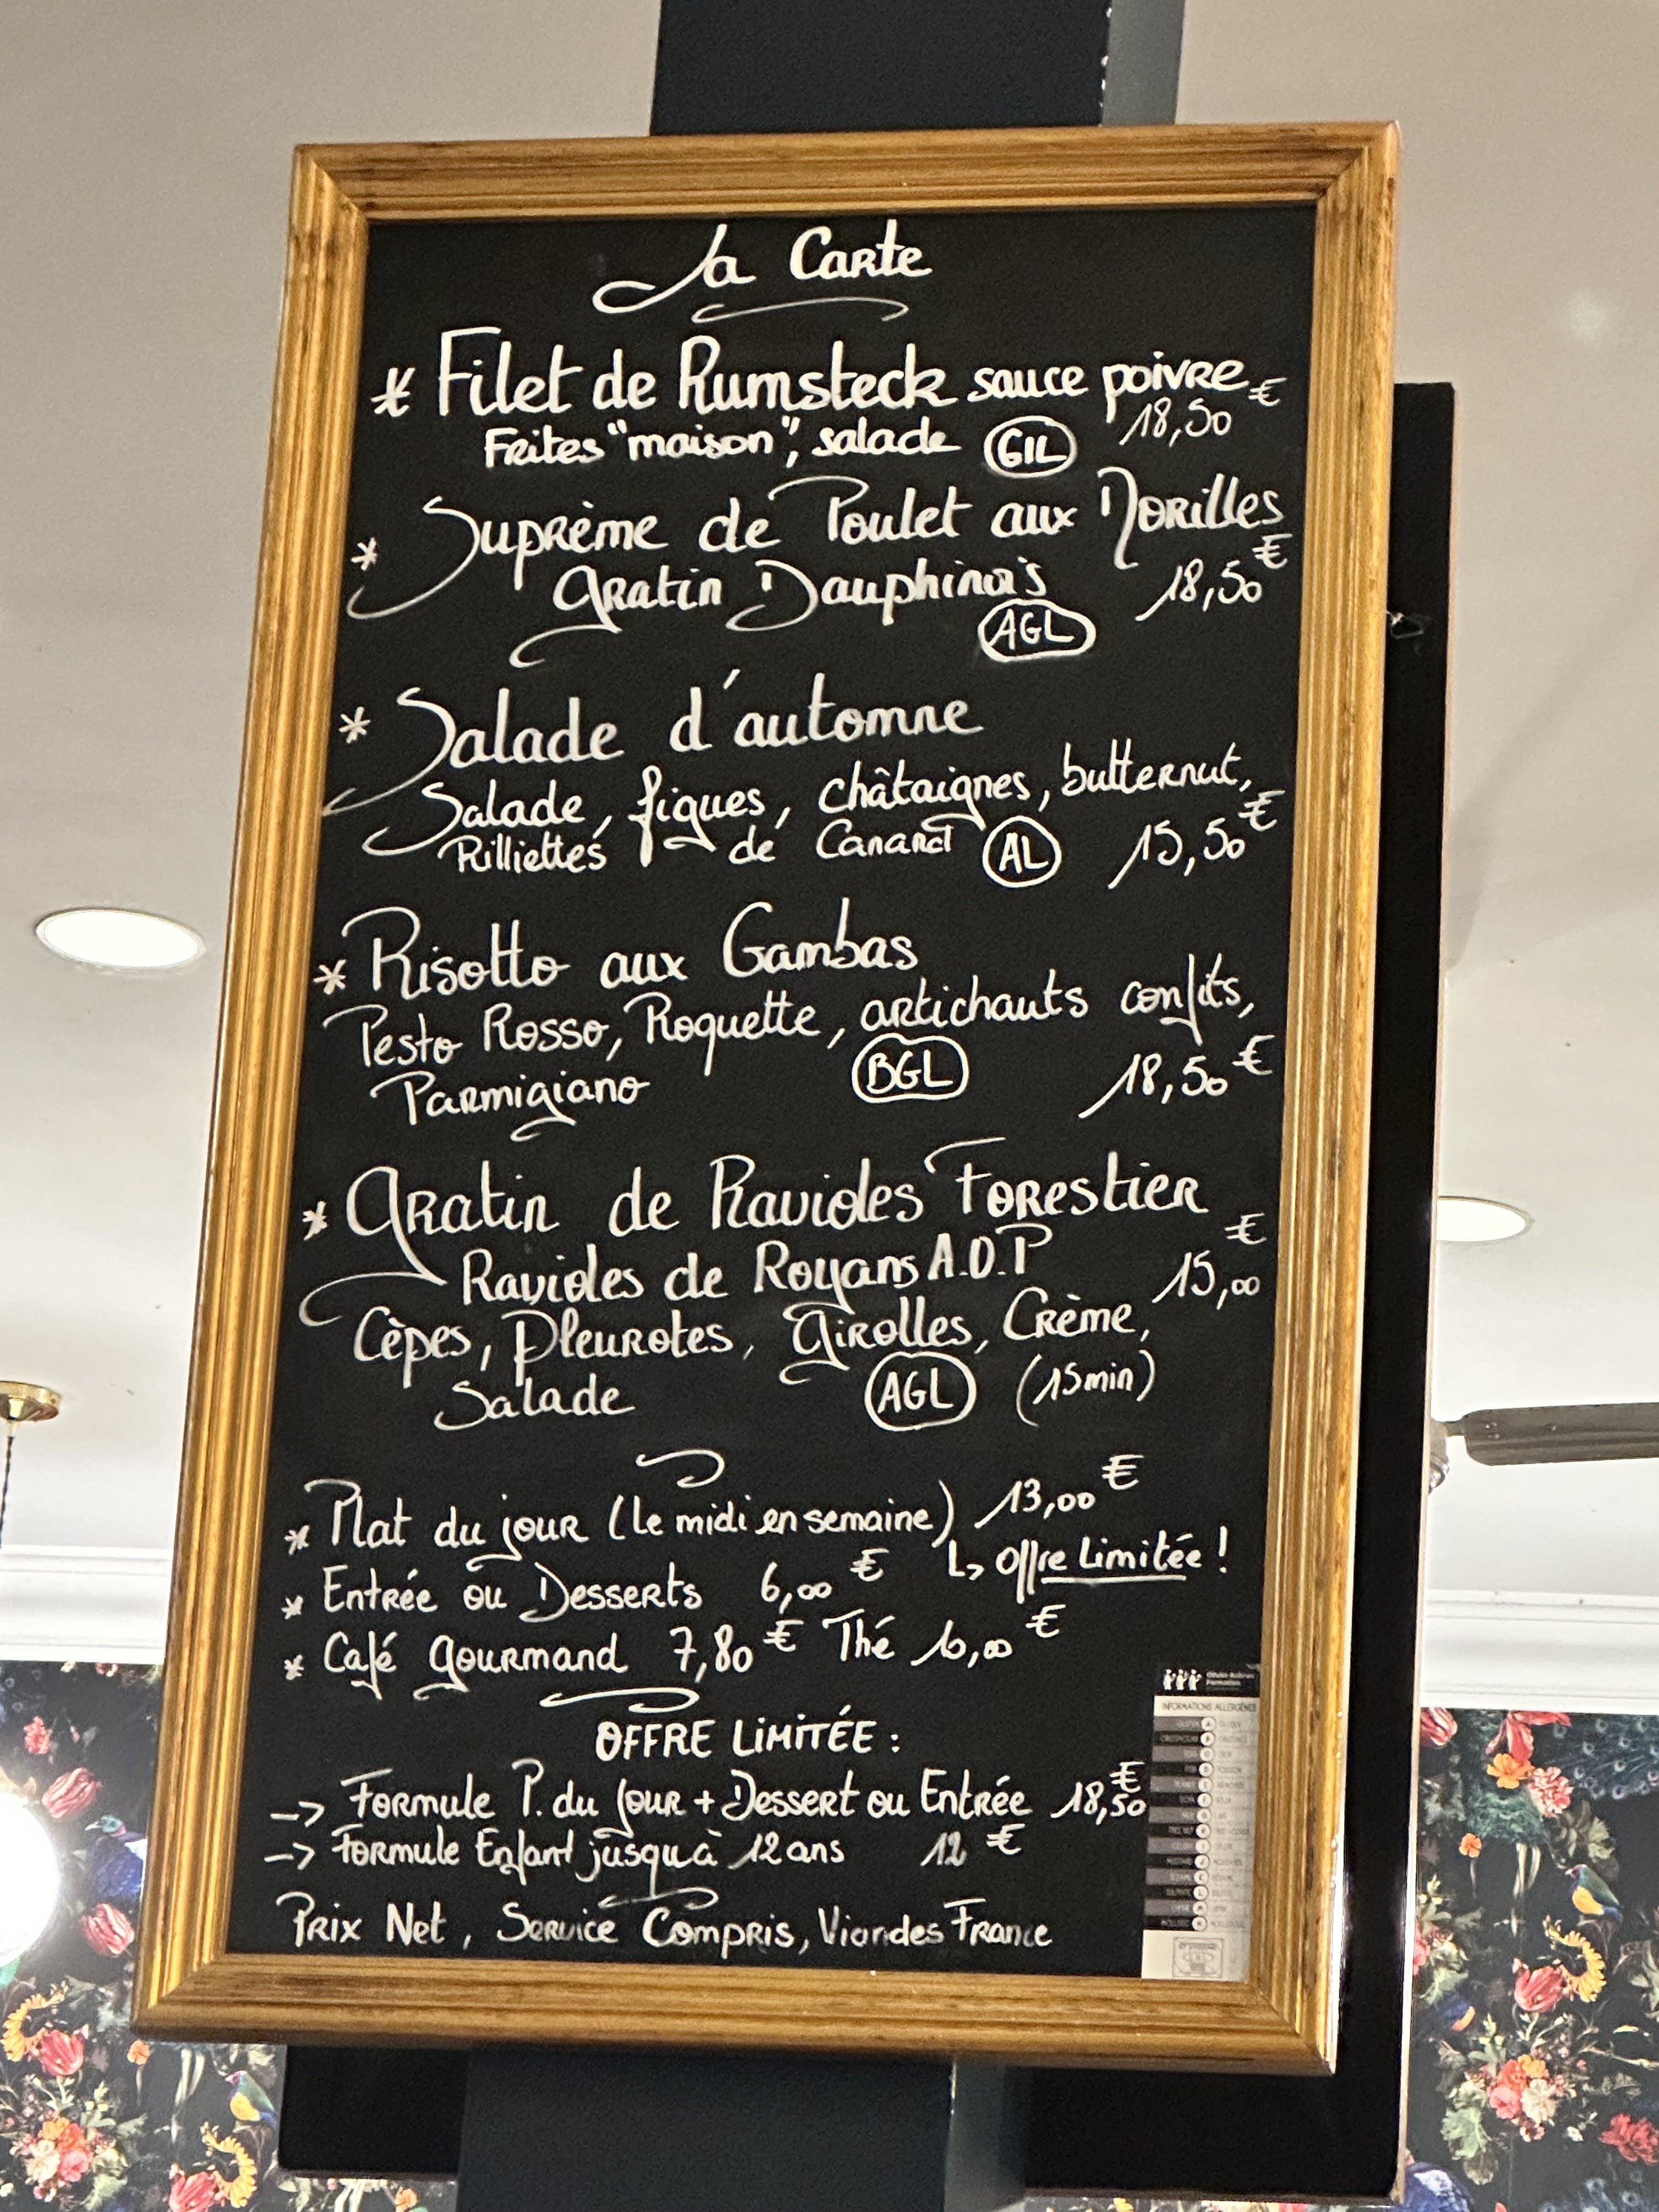 La Carte
* Filet de Rumsteck sauce poivre
Frites "maison", salade GIL 18,50 €
* Suprème de Poulet aux Morilles
Gratin Dauphinois 18,50 €
AGL
* Salade d'automne
Salade, figues, châtaignes, butternut,
Rilliettes de Canard AL 15,50 €
* Risotto aux Gambas
Pesto Rosso, Roquette, artichauts confits,
Parmigiano BGL 18,50 €
* Gratin de Ravioles Forestier
Ravioles de Royans A.O.P 15,00 €
Cèpes, Pleurotes, Girolles, Crème,
Salade AGL (15min)
* Plat du jour (le midi en semaine) 13,00 €
↳ Offre Limitée !
* Entrée ou Desserts 6,00 €
* Café gourmand 7,80 € Thé 10,00 €
OFFRE LIMITÉE :
-> Formule P. du Jour + Dessert ou Entrée 18,50 €
-> Formule Enfant jusqu'à 12 ans 12 €
Prix Net, Service Compris, Viandes France
Formation
INFORMATIONS ALLERGÈNES